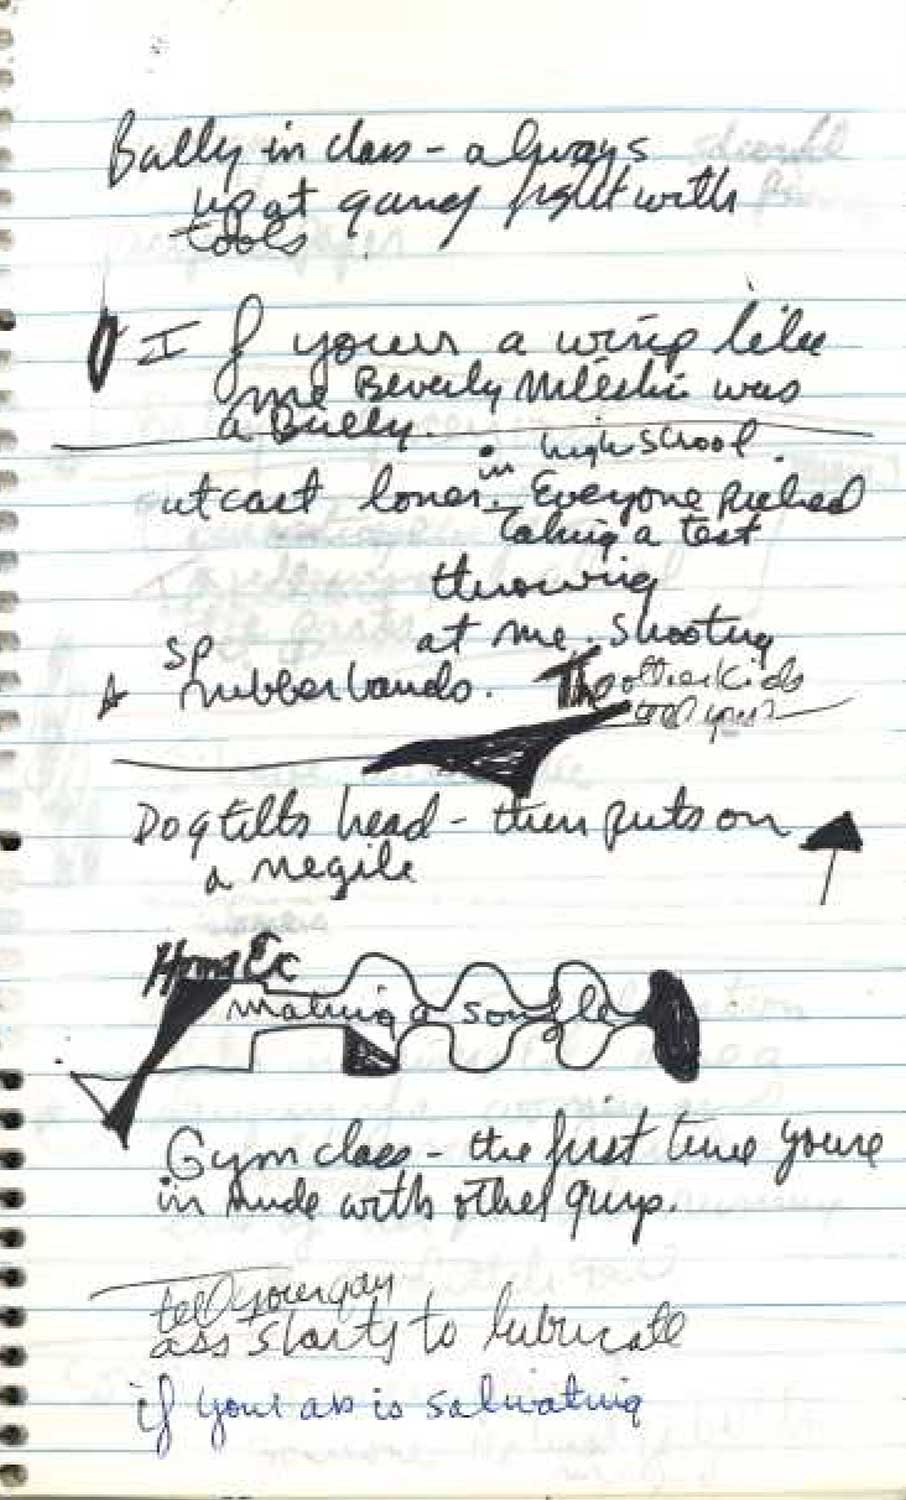 Bully in class - always
up at gang fight with
tools
If your a wimp like
me Beverly was
a Bully.
in high school.
outcast loner. Everyone Picked
taking a test
throwing
at me. Shooting
SP
rubberbands. The other kids
Dog tilts head - then puts on
a
Home Ec
making a soufle
Gym class - the first time youre
in nude with other guys.
tell your gay
ass starts to lubricate
if your ass is salivating